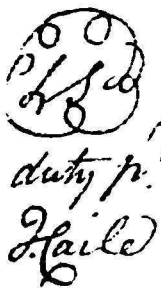 L S
duty p.
J. Caile